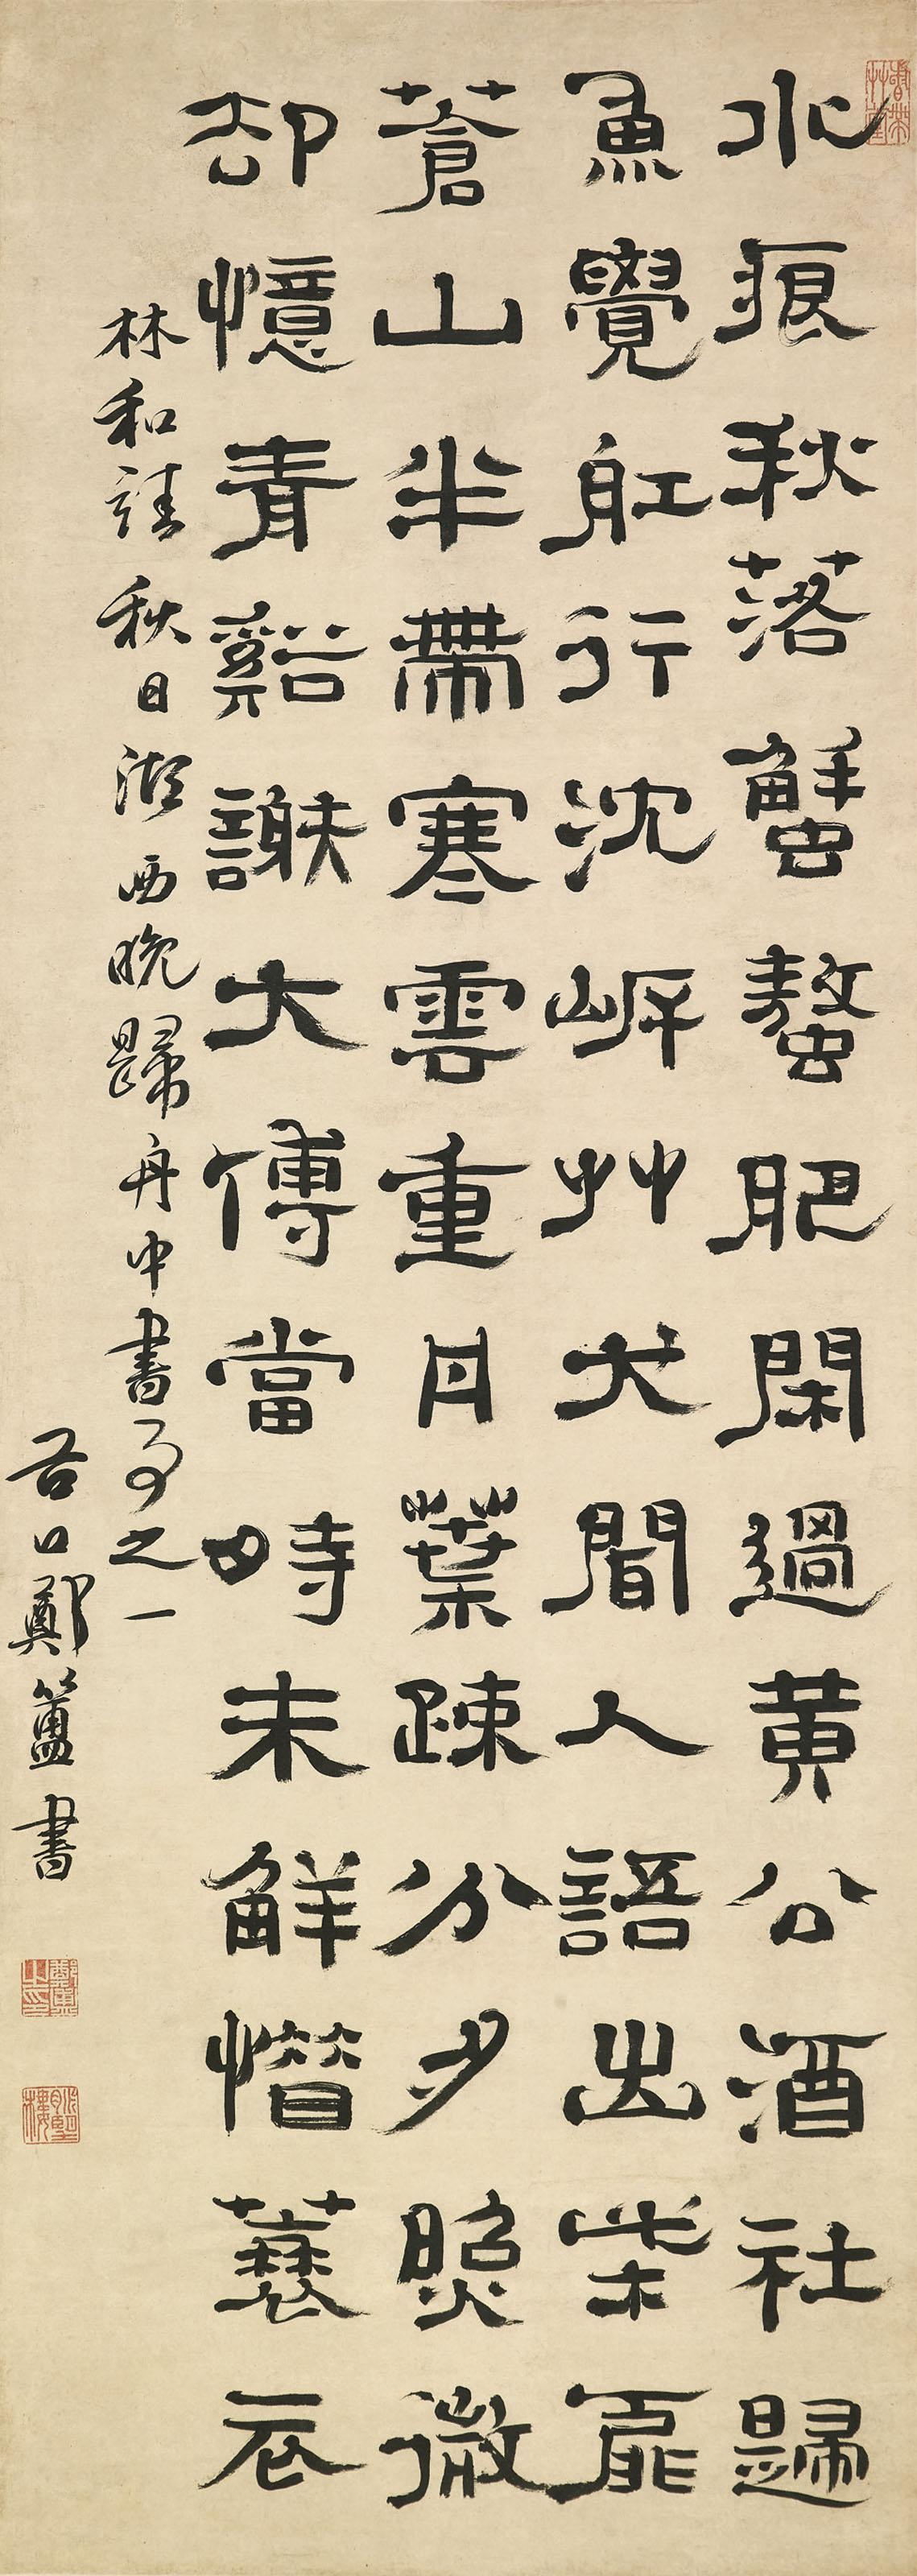 書帶艸堂
水痕秋落蟹螯肥閑過黃公酒社歸
魚覺舡行沈岸艸犬聞人語出柴扉
蒼山半帶寒雲重丹葉疎分夕照微
却憶青谿謝大傅當時未觧惜蓑衣
林和靖秋日湖西晚歸舟中書事之一
谷口鄭簠書
鄭簠之印